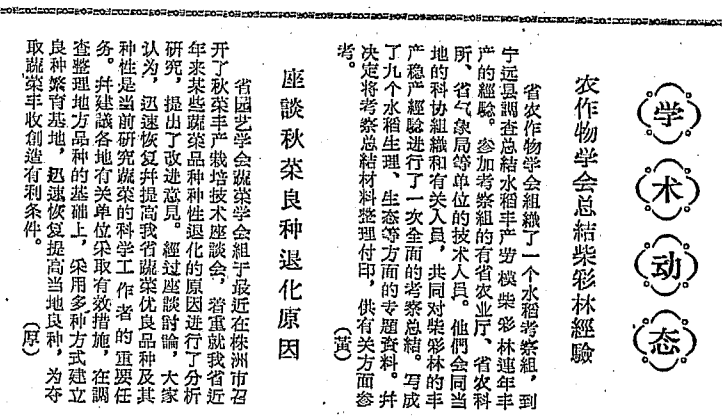 学术动态
农作物学会总結柴彩林經驗
省农作物学会組織了一个水稻考察組，到
宁远县調查总結水稻丰产劳模柴彩林連年丰
产的經驗。参加考察組的有省农业厅、省农科
所、省气象局等单位的技术人員。他們会同当
地的科协組織和有关人員，共同对柴彩林的丰
产稳产經驗进行了一次全面的考察总結。写成
了九个水稻生理、生态等方面的专題資料。幷
决定将考察总結材料整理付印，供有关方面参
考。
座談秋菜良种退化原因
省园艺学会蔬菜学会組于最近在株洲市召
开了秋菜丰产栽培技术座談会，着重就我省近
年来某些蔬菜品种种性退化的原因进行了分析
研究，提出了改进意見。經过座談討論，大家
认为，迅速恢复幷提高我省蔬菜优良品种及其
种性是当前研究蔬菜的科学工作者的重要任
务。幷建議各地有关单位采取有效措施，在調
查整理地方品种的基础上，采用多种方式建立
良种繁育基地，迅速恢复提高当地良种，为夺
取蔬菜丰收創造有利条件。
（原）